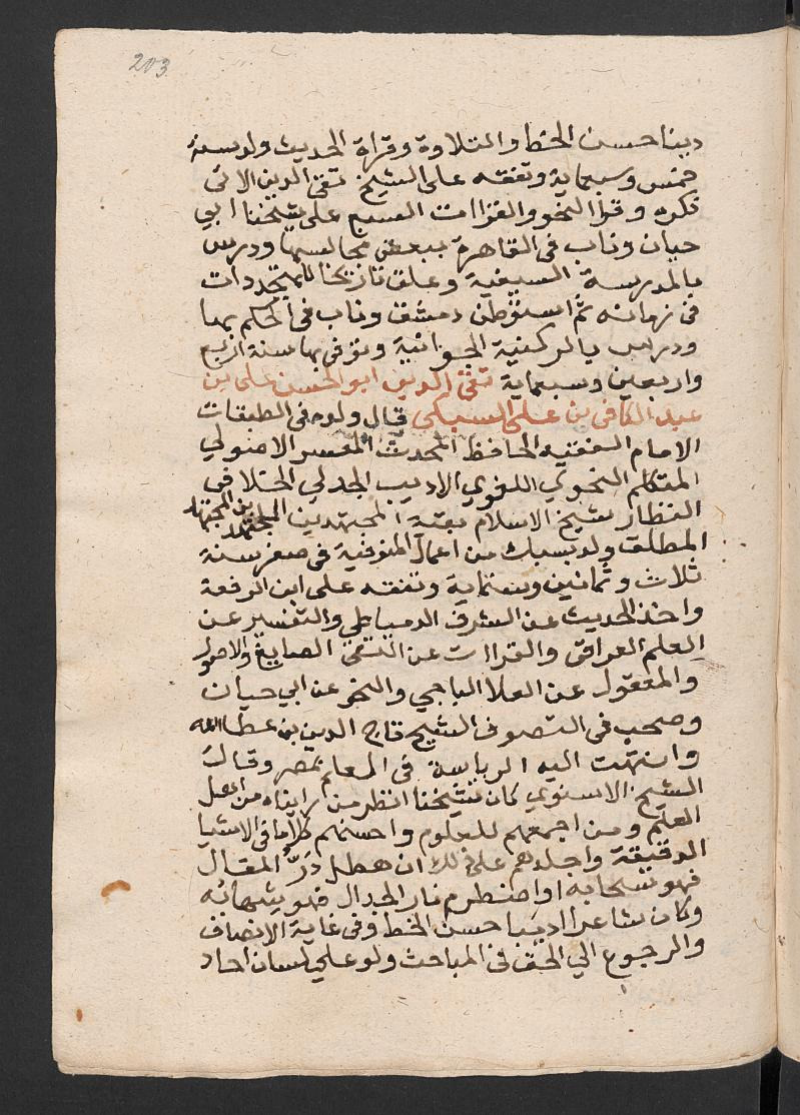 203
دينا حسن الخط والتلاوة وقراة الحديث ولد سنة
خمس وسبماية وتفقه على الشيخ تقي الدين الاتي
ذكره وقرا النحو والقراات السبع على شيخنا ابي
حيان وناب في القاهرة ببعض مجالسها ودرس
بالمدرسة السيفية وعلق تاريخا للمتجددات
في زمانه ثم استوطن دمشق وناب في الحكم بها
ودرس بالركنية الجوانية وتوفي بها سنة اربع
واربعين وسبعماية تقي الدين ابو الحسن علي بن
عبد الكافي بن علي السبكي قال ولده في الطبقات
الامام الفقيه الحافظ المحدث المفسر الاصولي
المتكلم النحوي اللغوي الاديب الجدلي الخلافي
النظار شيخ الاسلام بقية المجتهدين المجتهد بن المجتهد
المطلق ولد بسبك من اعمال المنوفية في صفر سنة
ثلاث وثمانين وستماية وتفقه على ابن الرفعة
واخذ الحديث عن الشرف الدمياطي والتفسير عن
العلم العراقي والقراات عن التقي الصايغ والاصول
والمعقول عن العلا الباجي والنحو عن ابي حيان
وصحب في التصوف الشيخ تاج الدين بن عطا الله
وانتهت اليه الرياسة في العلم بمصر وقال
الشيخ الاسنوي كان شيخنا انظر من رايناه من اهل
العلم ومن اجمعهم للعلوم واحسنهم كلاما في الاشيا
الدقيقة واجلدهم على ذلك ان هطل در المقال
فهو سحابه او اضطرم نار الجدال فهو شهابه
وكان شاعرا اديبا حسن الخط وفي غاية الانصاف
والرجوع الي الحق في المباحث ولو على لسان احاد